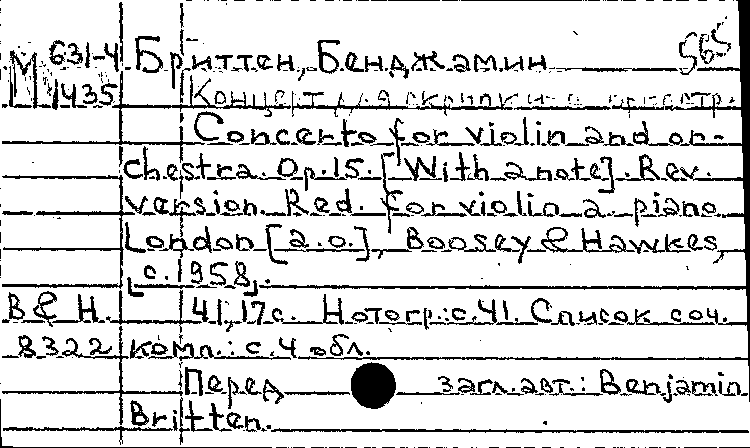 М 631-4 Бриттен, Бенджамин 565
1435 Концерт для скрипки и оркестр.
Concerto for violin and or-
chestra. Op.15. [With a note]. Rev.
version. Red. for violin a. piano
London [a.o.], Boosey & Hawkes,
[c.1958].
B & H. 41, 17с. Нотогр.: с.41. Список соч.
8322 комп.: с.4 обл.
Перед загл. авт.: Benjamin
Britten.